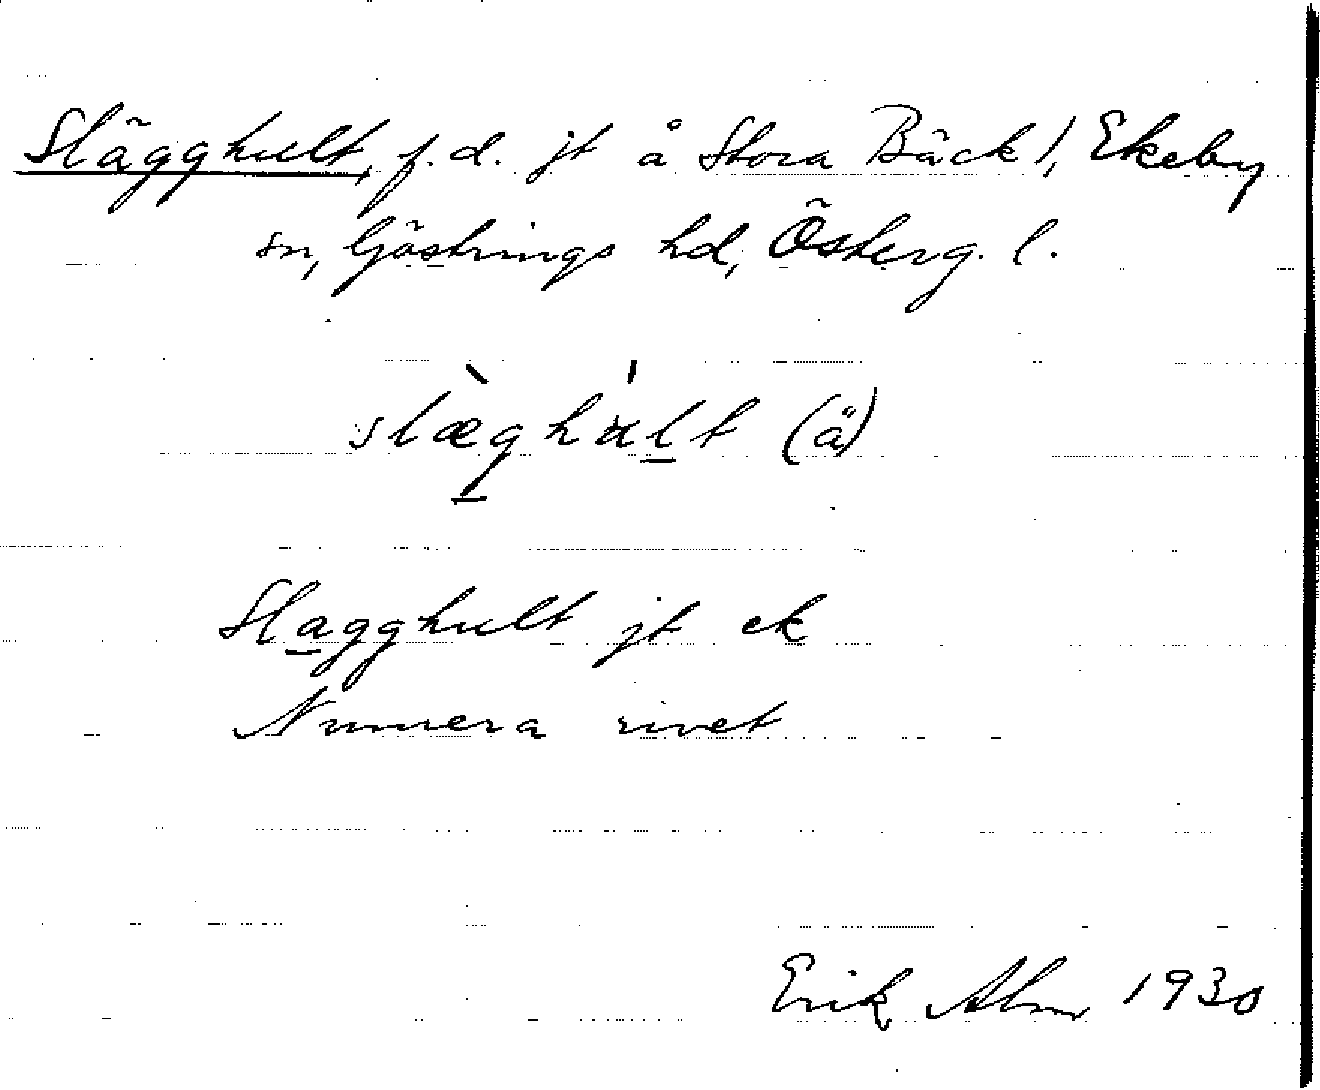 Slägghult, f.d. jt å Stora Bäck 1, Ekeby
sn, Göstrings hd, Österg. l.
slæghult (ä)
Slagghult jt ek
Numera rivet
Erik Alm 1930